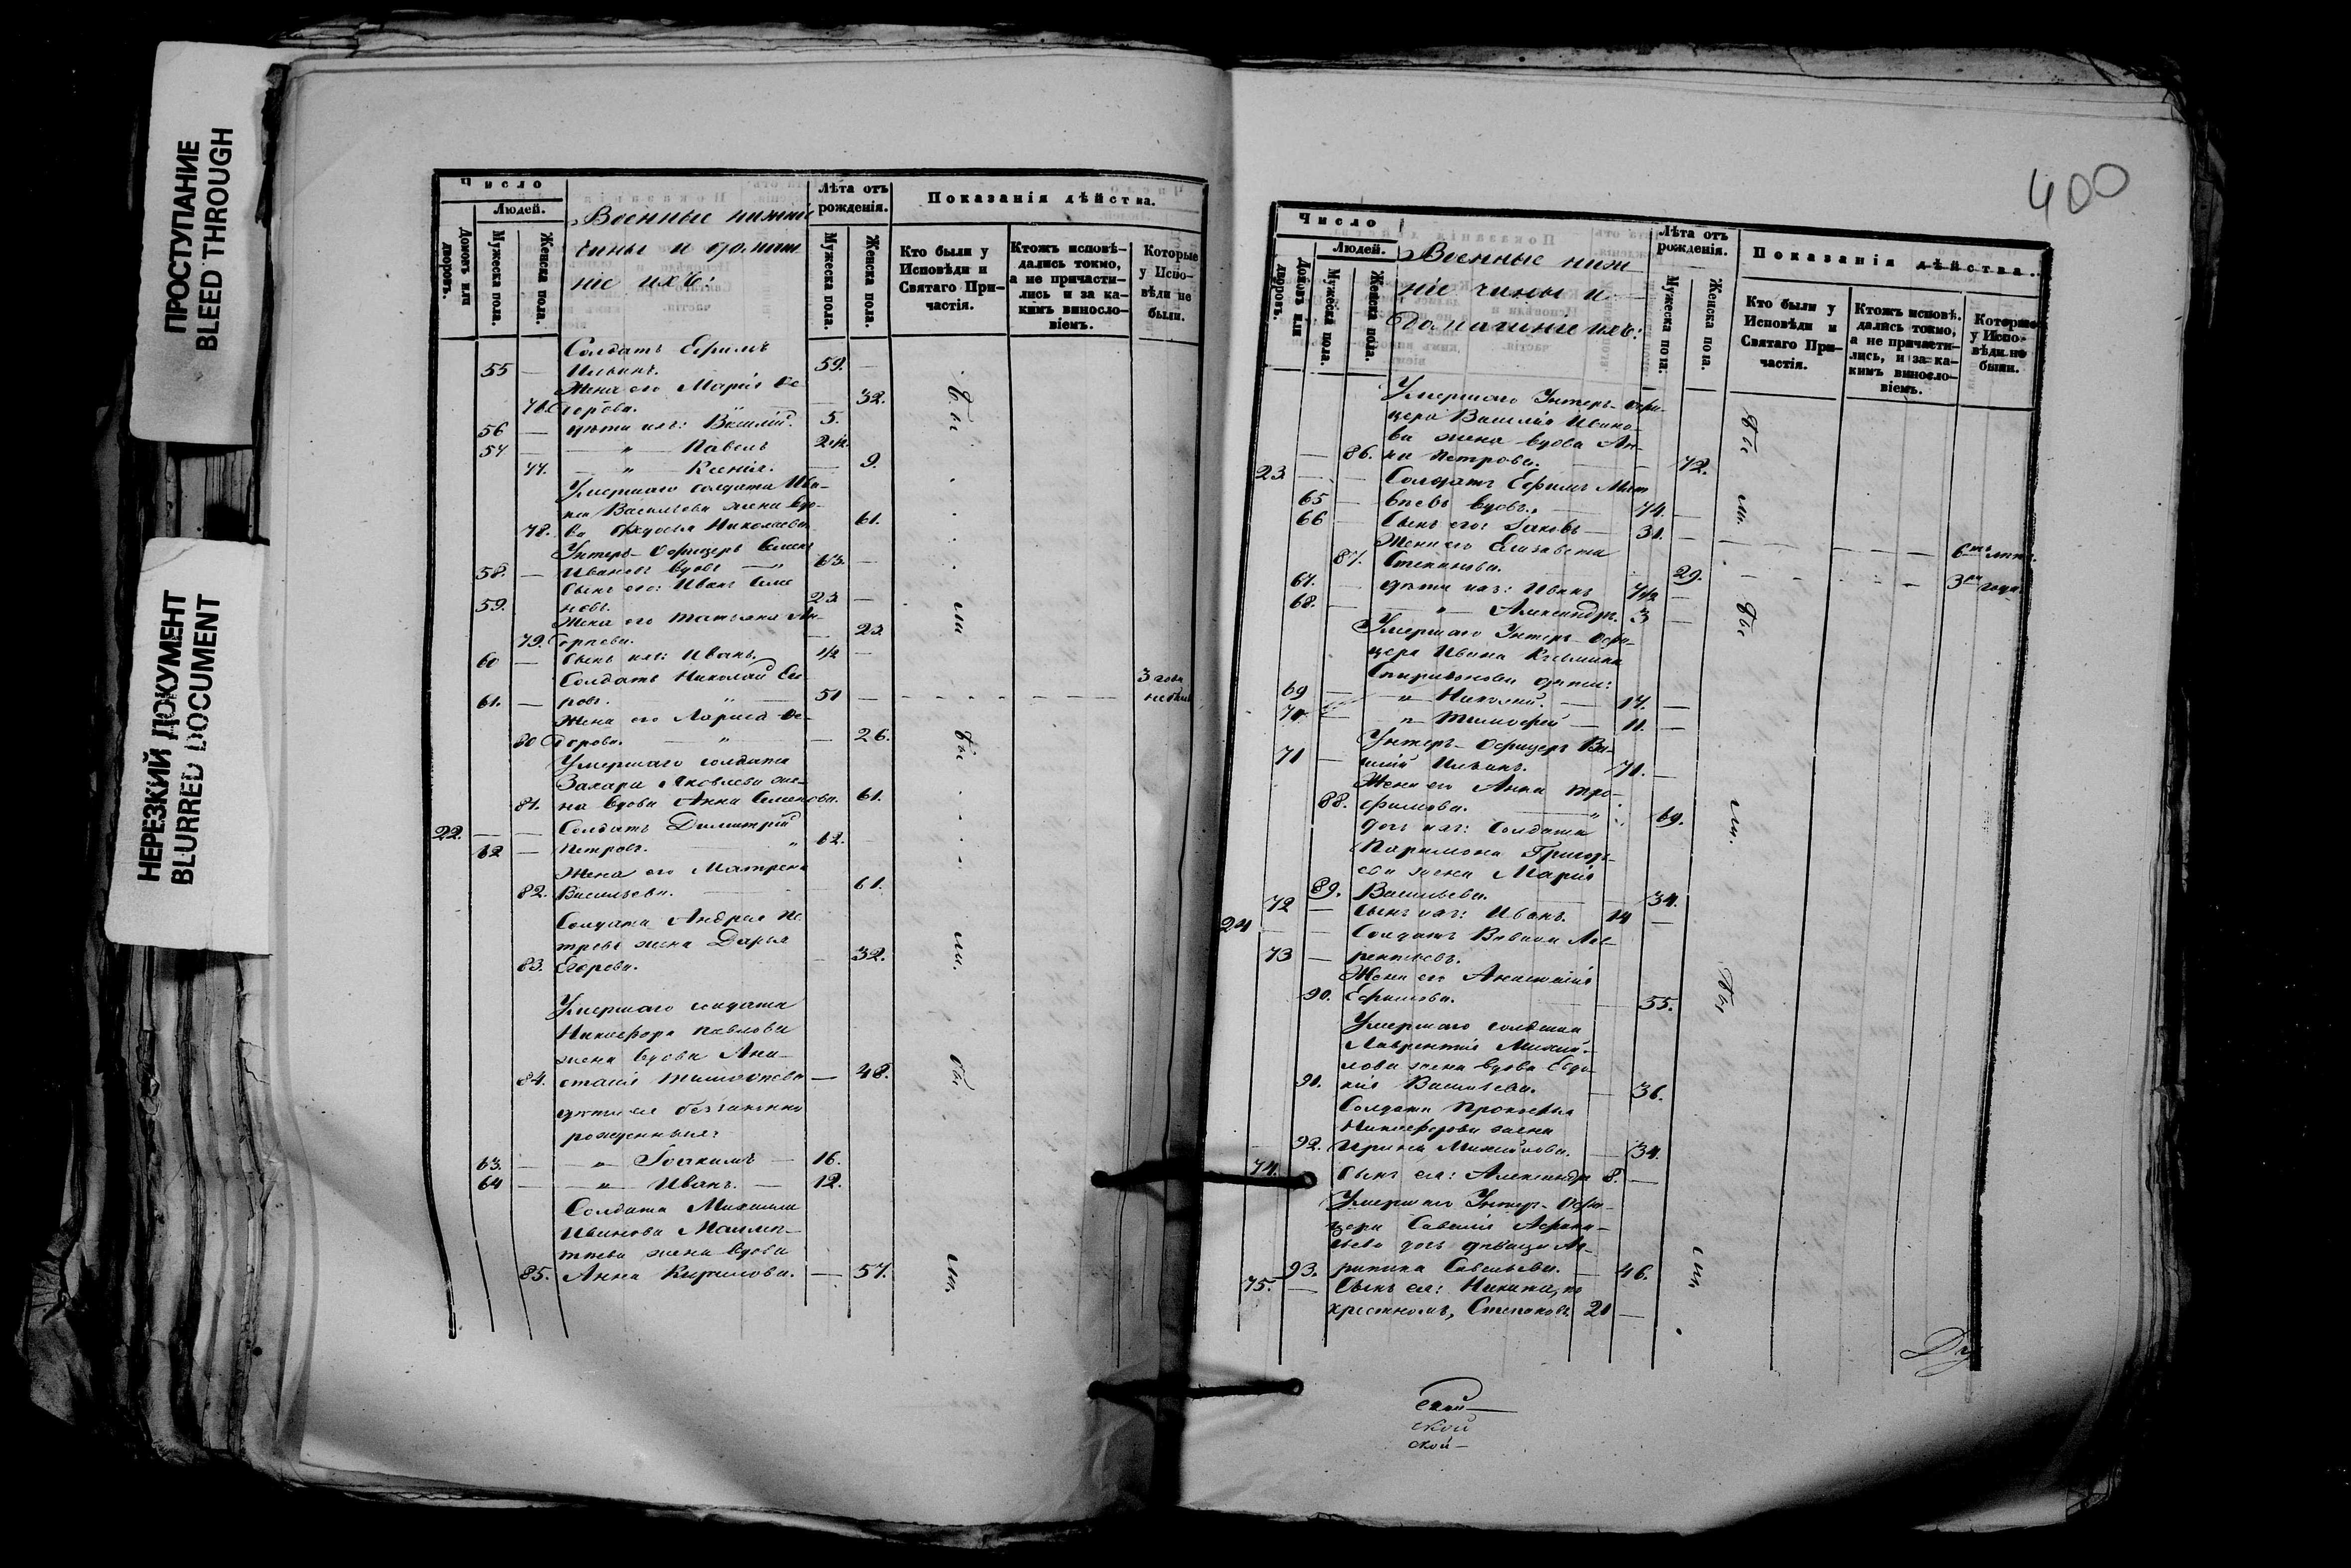 ПРОСТУПАНИЕ
BLEED THROUGH
НЕРЕЗКИЙ ДОКУМЕНТ
BLURRED DOCUMENT
Число
Людей.
Домовъ или дворовъ.
Мужеска пола.
Женска пола.
Военные нижніе
чины и домаш
ніе ихъ:
Лѣта отъ рожденія.
Мужеска пола.
Женска пола.
Показанія дѣйства.
Кто были у Исповѣди и Святаго При-частія.
Ктожъ исповѣ-дались токмо, а не причасти-лись и за ка-кимъ виносло-віемъ.
Которые у Испо-вѣди не были.
Солдатъ Ефимъ
55 — Ильинъ. 59. —
Жена его Марія Ѳе
76. дорова. — 32.
56 — дѣти ихъ: Василій. 5.
57 — „ Павелъ 2 1/2
77. — „ Ксенія. — 9.
Умершаго солдата Ива-
на Васильева жена вдо-
78. ва Ѳедосья Николаева 61.
Унтеръ-Офицеръ Семенъ
58. — Ивановъ вдовъ — 63. —
Сынъ его: Иванъ Семе
59. новъ. 23 —
Жена его Татьяна Ан-
79. — 23.
60 — Сынъ ихъ: Иванъ. 1/2 —
Солдатъ Николай
61. — „ 51 — 3 года не былъ
Жена его Лариса Ѳе-
80 дорова. — „ — 26.
Умершаго солдата
Захара Яковлева же-
81. на вдова Анна Семенова. 61.
22. — — Солдатъ Димитрій
62 — Петровъ. „ 62.
Жена его Матрена
82. Васильева. 61.
Солдата Андрея Пе
трова жена Дарья
83. Егорова. — 32.
Умершаго солдата
Никифора Павлова
жена вдова Ана-
84. стасія Тимоѳеева — 48.
дѣти ея беззаконно
рожденныя:
63. — — „ Іоакимъ — 16.
64 — — „ Иванъ. — 12.
Солдата Михаила
Иванова
жена вдова
85. Анна Кирилова. — 57.
бы
ли
бы
ли.
бы
ли,
400
Число
Людей.
Домовъ или дворовъ.
Мужеска пола.
Женска пола.
Военные ниж
ніе чины и
домашніе ихъ:
Лѣта отъ рожденія.
Мужеска пола.
Женска пола.
Показанія дѣйства.
Кто были у Исповѣди и Святаго При-частія.
Ктожъ исповѣ-дались токмо, а не причасти-лись, и за ка-кимъ виносло-віемъ.
Которые у Испо-вѣди не были.
Умершаго Унтеръ-Офи-
цера Василія Ивано-
ва жена вдова Ан-
86. на Петрова. — 72.
23 — — Солдатъ Ефимъ Мат
65 — вѣевъ вдовъ. 74. —
66 — Сынъ его: Іаковъ — 31. — 6ть лѣтъ.
Жена его Елизавета
87. Степанова. — 29. 3ри года.
67. — дѣти ихъ: Иванъ 7 1/2 —
68. — „ Александръ. 3 —
Умершаго Унтеръ-Офи-
цера Ивана Кузьмина
Спиридонова дѣти:
69 — „ Николай. — 17. —
70 — „ Тимоѳей — 11. —
Унтеръ-Офицеръ Ва-
71 — силій Ильинъ. 71. —
Жена его Анна Тро-
88. фимова. „ 69.
дочь ихъ: Солдата
Парамона Григорь-
ева жена Марія
89. Васильева. — 34.
72 — Сынъ ихъ: Иванъ. 14 —
24 — — Солдатъ Вавила Лав-
73 — рентьевъ.
Жена его Анастасія
90. Ефимова. — 55.
Умершаго солдата
Лаврентія Михай-
лова жена вдова Евдо-
91. кія Васильева. — 36.
Солдата Прокофья
Никифорова жена
92. Ирина Михайлова. — 34.
74. Сынъ ея: Александръ 8. —
Умершаго Унтеръ-Офи-
цера Савелія Афана-
сьева дочь дѣвица Аг-
93. рипина Савельева. — 46.
75. — Сынъ ея: Никита, по
крестномъ, Степановъ 20 —
бы
ли.
бы
ли.
бы
ли
Ду
ской —
ской
ской —